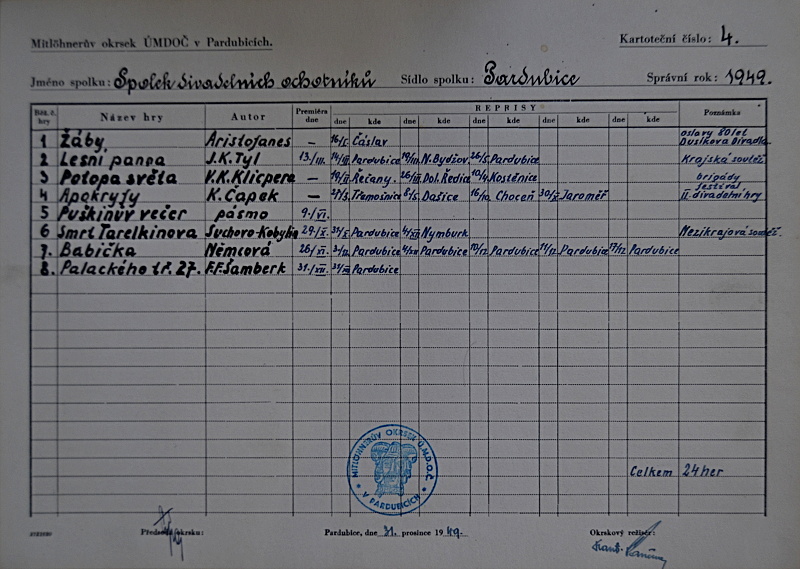 Mitlöhnerův okrsek ÚMDOČ v Pardubicích.
Kartoteční číslo: 4.
Jméno spolku: Spolek divadelních ochotníků Sídlo spolku: Pardubice Správní rok: 1949.
Název hry Autor Premiéra dne REPRISY Poznámka
dne kde dne kde dne kde dne kde dne kde
1 Žáby Aristofanes — 16/I. Čáslav oslavy 80 let Dusíkova Divadla
2 Lesní panna J.K. Tyl 13./III. 14/III Pardubice 19/III N. Bydžov 26/5 Pardubice Krajská soutěž
3 Potopa světa V.K. Klicpera — 19/II Řečany 26/III Dol. Ředice 10/4 Kostěnice brigády
4 Apokryfy K. Čapek — 27/3 Třemošnice 8/5 Dašice 16/10 Choceň 30/X Jaroměř festival II. divadelní hry
5 Puškinův večer pásmo 9./VI.
6 Smrt Tarelkinova Suchovo-Kobylin 29./X. 31/X Pardubice 4/XII Nymburk Mezikrajová soutěž
7. Babička Němcová 26/XI. 3/12 Pardubice 4/XII Pardubice 10/12 Pardubice 11/12 Pardubice 17/12 Pardubice
8. Palackého tř. 27. F.F. Šamberk 31./XII. 31/XII Pardubice
MITLÖHNERŮV OKRSEK Ú.M.D.O.Č. V PARDUBICÍCH
Celkem 24 her
Předseda okrsku: Pardubice, dne 31. prosince 1949. Okrskový režisér: